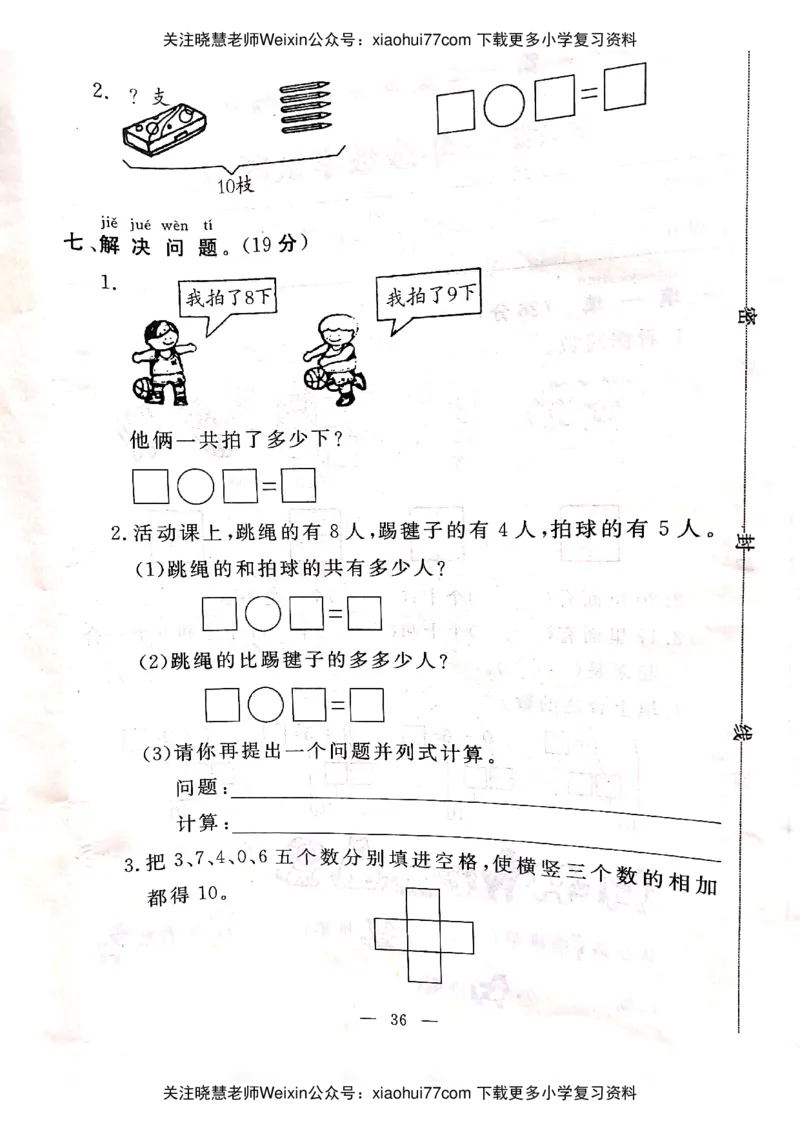 关注晓慧老师Weixin公众号：xiaohui77com 下载更多小学复习资料
2. ？支
□○□=□
10枝
jiě jué wèn tí
七、解决问题。(19分)
1.
我拍了8下
我拍了9下
他俩一共拍了多少下?
□○□=□
2.活动课上,跳绳的有8人,踢毽子的有4人,拍球的有5人。
(1)跳绳的和拍球的共有多少人?
□○□=□
(2)跳绳的比踢毽子的多多少人?
□○□=□
(3)请你再提出一个问题并列式计算。
问题:
计算:
3.把3、7、4、0、6五个数分别填进空格,使横竖三个数的相加
都得10。
— 36 —
密
封
线
关注晓慧老师Weixin公众号：xiaohui77com 下载更多小学复习资料